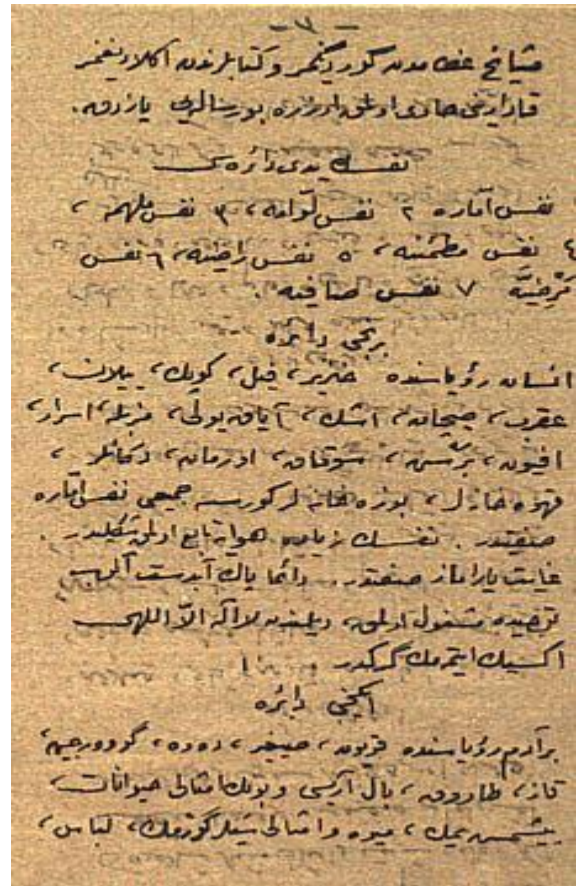 - ٣ -
مشایخ عظامدن گوردیگمز و کتابلرندن آکلادیغمز
قازانی حاوی اولمق اوزره بو رسالەیی یازدق.
نفسك یدی دائره‌سی
نفس اماره ٢ نفس لوّامه، ٣ نفس ملهمه،
٤ نفس مطمئنه، ٥ نفس راضیه، ٦ نفس
مرْضیّه ٧ نفس صافیه.
برنجی دائره
انسان رؤیاسنده خنزیر، فیل، کوپك، ییلان،
عقرب، صیچان، اشك، آیاق یولی، مزبله، اسرار،
افیون، برش، سوقاق، اورمان، دکانلر،
قهوه خانه‌لر، بوزه خانه‌لر کورسه جمیعی نفس اماره
صفتیدر. نفسك زیاده هوایه تابع اولمق شکلیدر.
غایت یاراماز صفتدر. دائما پاك آبدست آلوب
توحیده مشغول اولمق، دیلندن لا اله الّا اللهی
اکسیك ایتمەمك گرکدر
ایکنجی دائره
بر آدم رؤیاسنده قویون، صیغیر، دوه، گوورجین،
قاز، طاووق، بال آریسی و بونك امثالی حیوانات،
پیشمش یمك، میوه و امثالی شیلر گورمك، لباس،